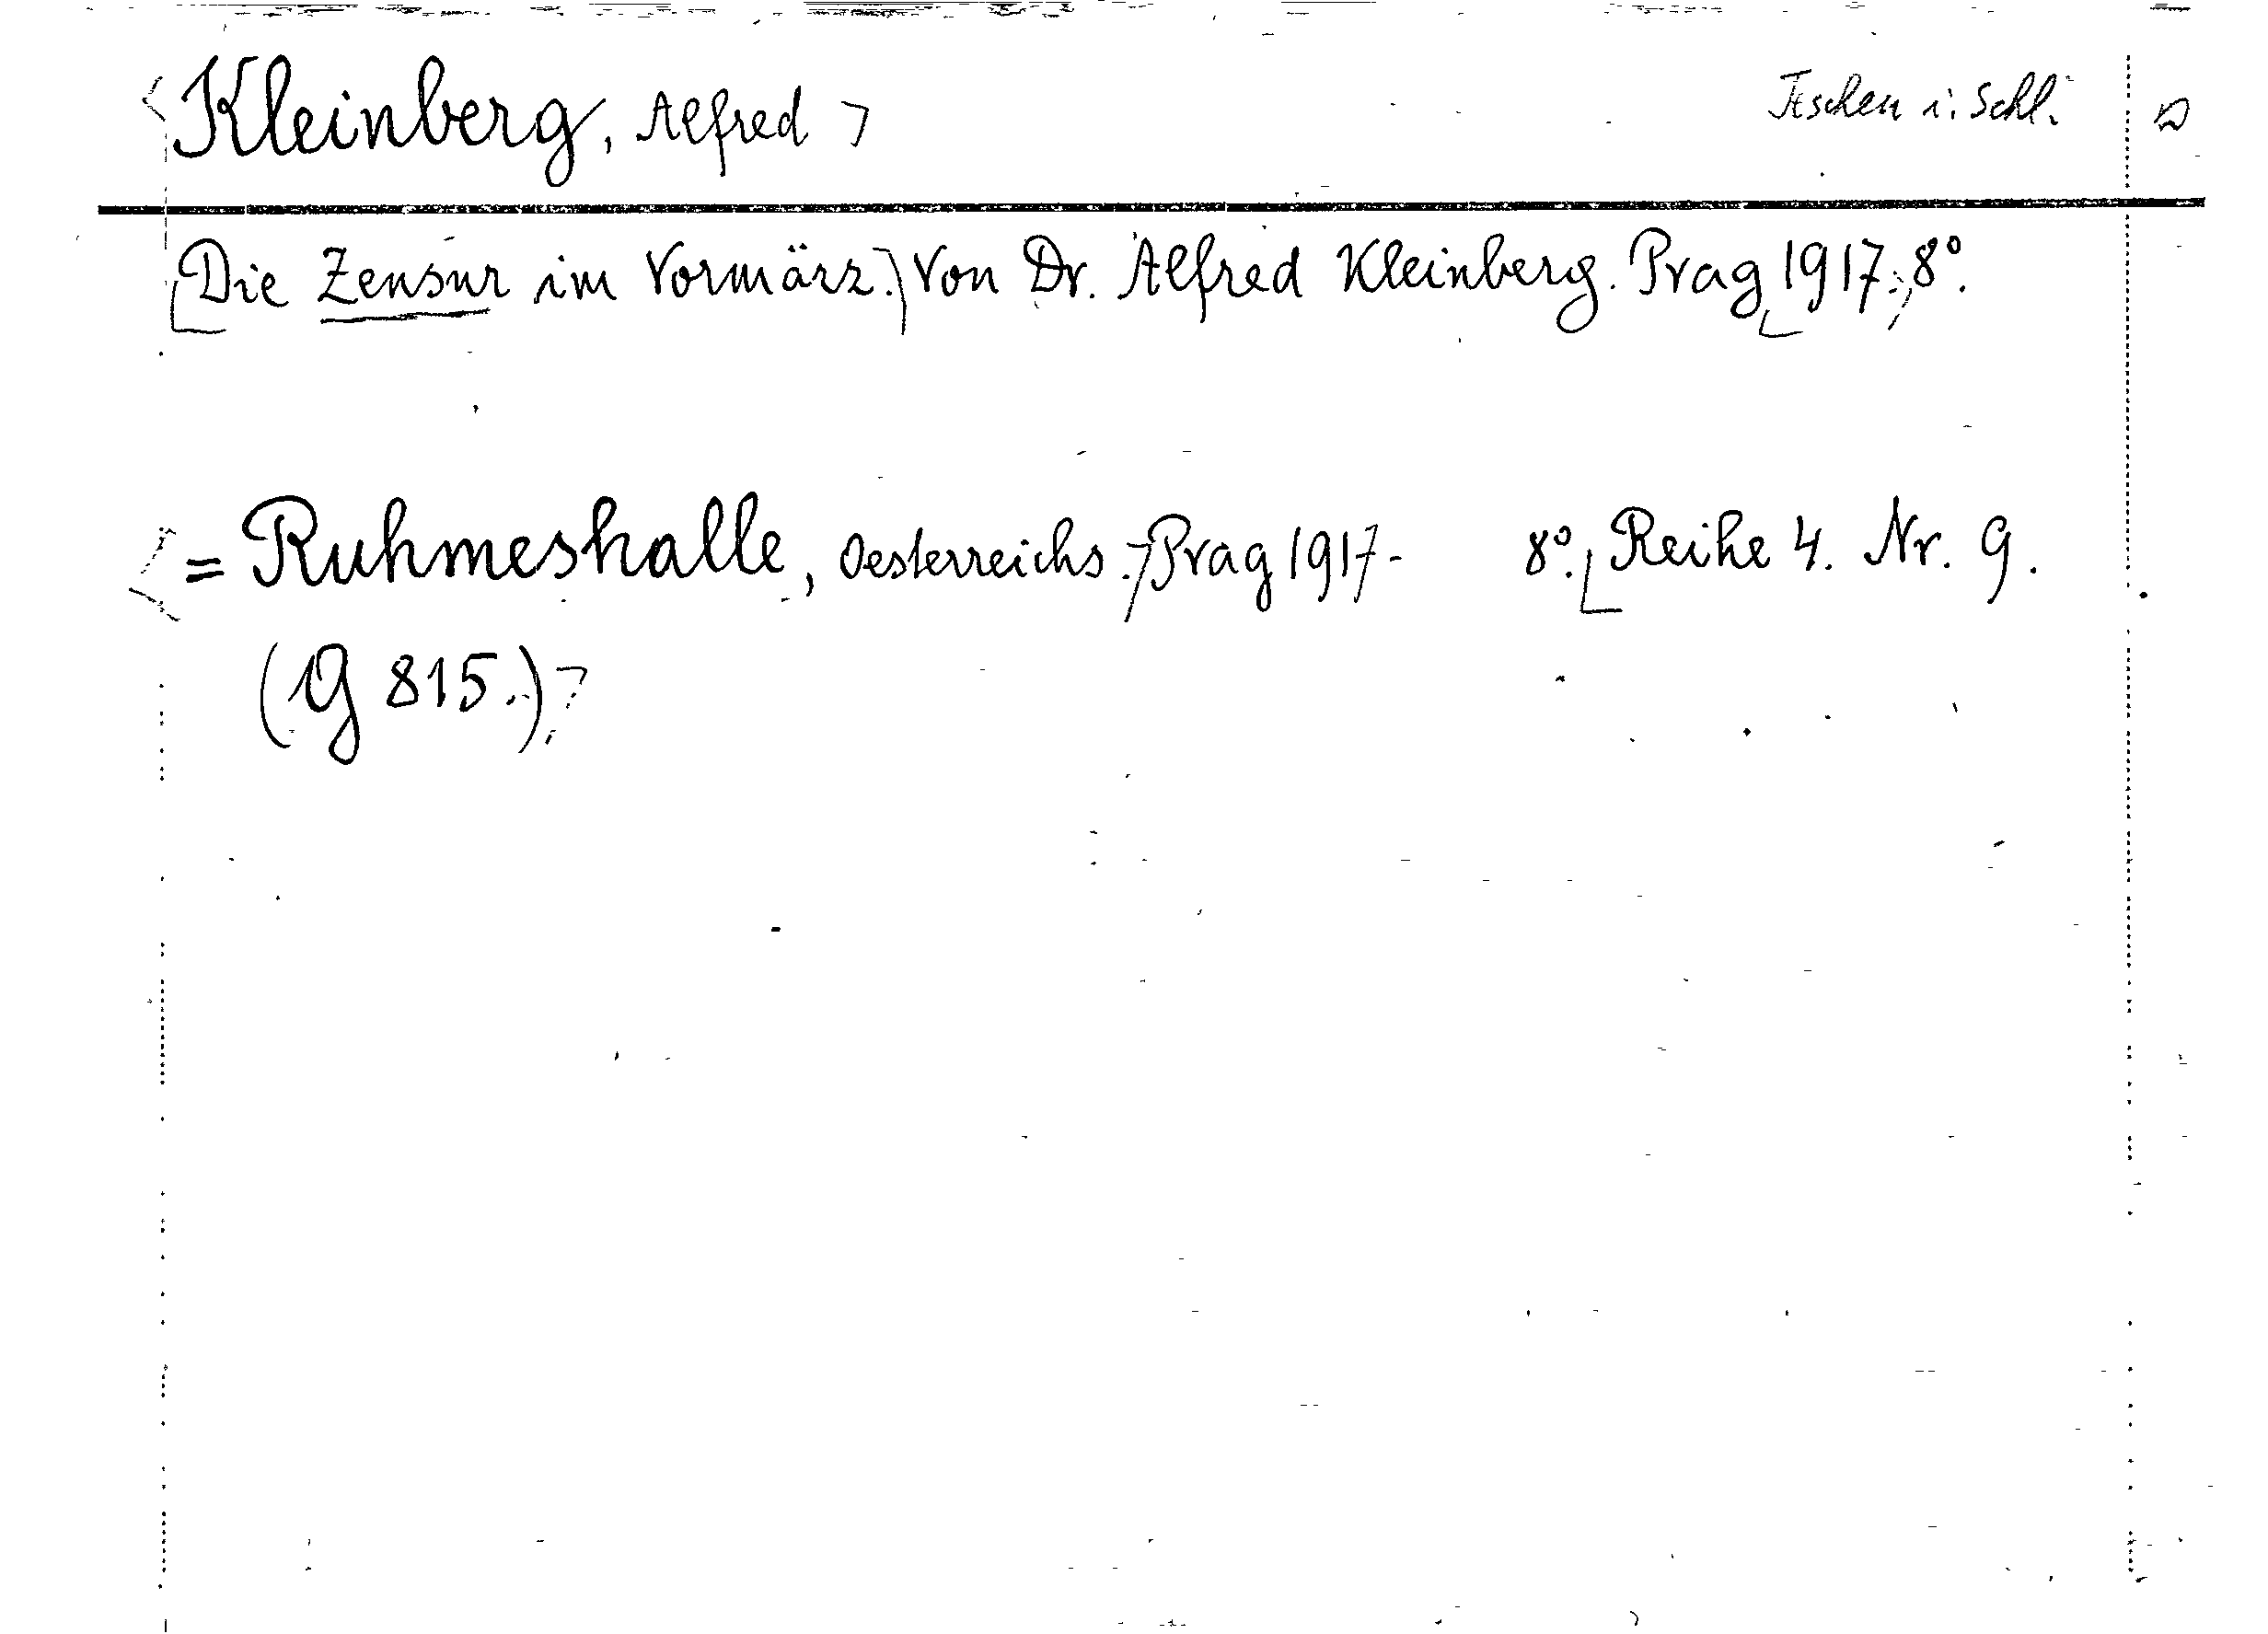 Kleinberg, Alfred Teschen i. Schl.
Die Zensur im Vormärz. Von Dr. Alfred Kleinberg. Prag 1917. 8°.
= Ruhmeshalle, Oesterreichs. Prag 1917- 8°. Reihe 4. Nr. 9.
(G 815.)